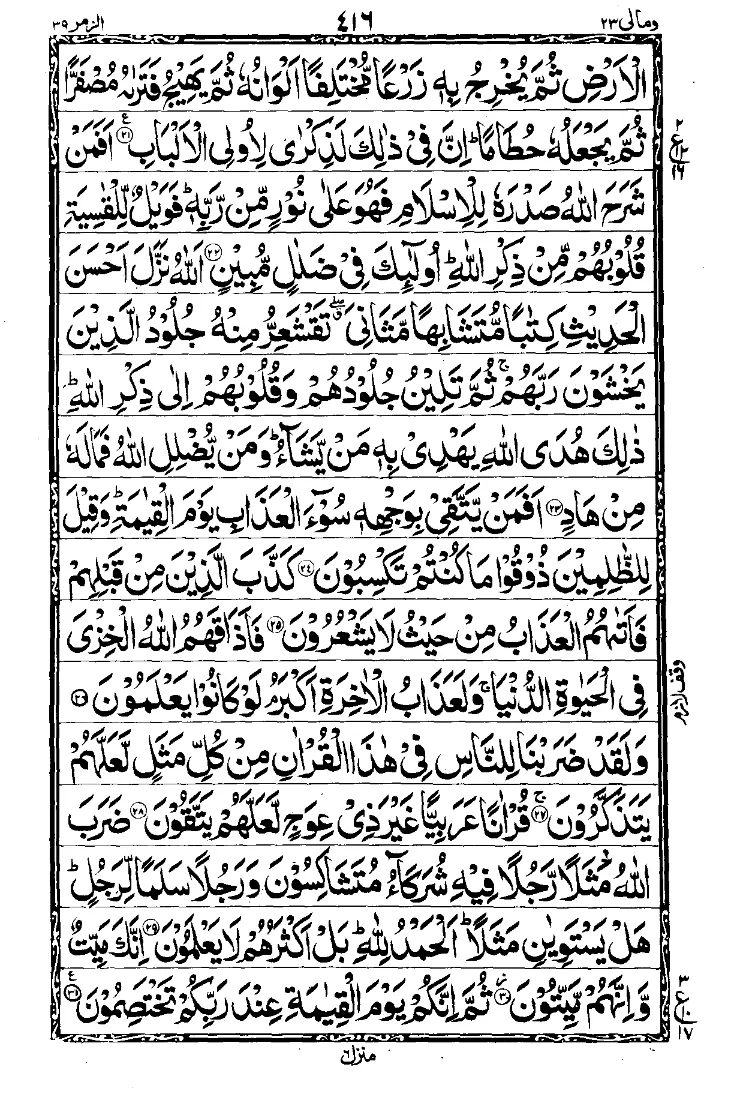 الزمر ٣٩ ٤١٦ ومالی ٢٣
الْاَرْضِ ثُمَّ يُخْرِجُ بِهٖ زَرْعًا مُّخْتَلِفًا اَلْوَانُهٗ ثُمَّ يَهِيْجُ فَتَرٰىهُ مُصْفَرًّا
ثُمَّ يَجْعَلُهٗ حُطَامًا ؕ اِنَّ فِيْ ذٰلِكَ لَذِكْرٰى لِاُولِى الْاَلْبَابِ ﴿٢١﴾ اَفَمَنْ
شَرَحَ اللّٰهُ صَدْرَهٗ لِلْاِسْلَامِ فَهُوَ عَلٰى نُوْرٍ مِّنْ رَّبِّهٖ ؕ فَوَيْلٌ لِّلْقٰسِيَةِ
قُلُوْبُهُمْ مِّنْ ذِكْرِ اللّٰهِ ؕ اُولٰٓئِكَ فِيْ ضَلٰلٍ مُّبِيْنٍ ﴿٢٢﴾ اَللّٰهُ نَزَّلَ اَحْسَنَ
الْحَدِيْثِ كِتٰبًا مُّتَشَابِهًا مَّثَانِيَ ۖۗ تَقْشَعِرُّ مِنْهُ جُلُوْدُ الَّذِيْنَ
يَخْشَوْنَ رَبَّهُمْ ۚ ثُمَّ تَلِيْنُ جُلُوْدُهُمْ وَقُلُوْبُهُمْ اِلٰى ذِكْرِ اللّٰهِ ؕ
ذٰلِكَ هُدَى اللّٰهِ يَهْدِيْ بِهٖ مَنْ يَّشَآءُ ؕ وَمَنْ يُّضْلِلِ اللّٰهُ فَمَا لَهٗ
مِنْ هَادٍ ﴿٢٣﴾ اَفَمَنْ يَّتَّقِيْ بِوَجْهِهٖ سُوْٓءَ الْعَذَابِ يَوْمَ الْقِيٰمَةِ ؕ وَقِيْلَ
لِلظّٰلِمِيْنَ ذُوْقُوْا مَا كُنْتُمْ تَكْسِبُوْنَ ﴿٢٤﴾ كَذَّبَ الَّذِيْنَ مِنْ قَبْلِهِمْ
فَاَتٰىهُمُ الْعَذَابُ مِنْ حَيْثُ لَا يَشْعُرُوْنَ ﴿٢٥﴾ فَاَذَاقَهُمُ اللّٰهُ الْخِزْيَ
فِى الْحَيٰوةِ الدُّنْيَا ۚ وَلَعَذَابُ الْاٰخِرَةِ اَكْبَرُ ۘ لَوْ كَانُوْا يَعْلَمُوْنَ ﴿٢٦﴾
وَلَقَدْ ضَرَبْنَا لِلنَّاسِ فِيْ هٰذَا الْقُرْاٰنِ مِنْ كُلِّ مَثَلٍ لَّعَلَّهُمْ
يَتَذَكَّرُوْنَ ﴿٢٧﴾ ۚ قُرْاٰنًا عَرَبِيًّا غَيْرَ ذِيْ عِوَجٍ لَّعَلَّهُمْ يَتَّقُوْنَ ﴿٢٨﴾ ضَرَبَ
اللّٰهُ مَثَلًا رَّجُلًا فِيْهِ شُرَكَآءُ مُتَشَاكِسُوْنَ وَرَجُلًا سَلَمًا لِّرَجُلٍ ؕ
هَلْ يَسْتَوِيٰنِ مَثَلًا ؕ اَلْحَمْدُ لِلّٰهِ ؕ بَلْ اَكْثَرُهُمْ لَا يَعْلَمُوْنَ ﴿٢٩﴾ اِنَّكَ مَيِّتٌ
وَّاِنَّهُمْ مَّيِّتُوْنَ ﴿٣٠﴾ ؗ ثُمَّ اِنَّكُمْ يَوْمَ الْقِيٰمَةِ عِنْدَ رَبِّكُمْ تَخْتَصِمُوْنَ ﴿٣١﴾
٢
ع
١٢
١٦
وقف لازم
٣
ع
١٠
١٧
منزل ٦